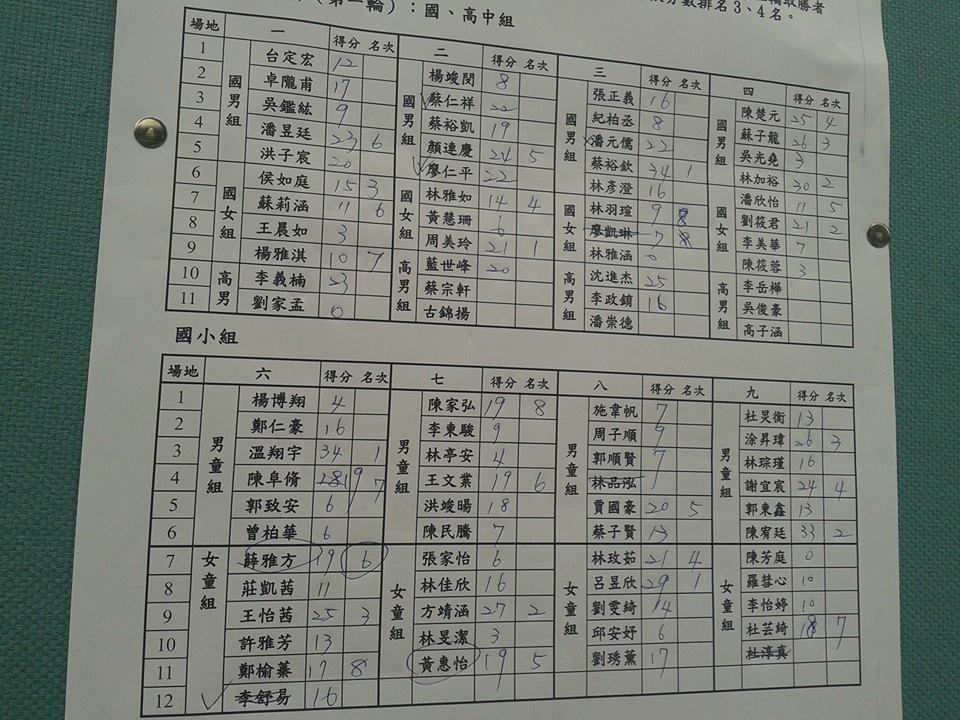 （第一輪）：國、高中組
數排名3、4名。
場地 一 得分 名次 二 得分 名次 三 得分 名次 四 得分 名次
1 國男組 台定宏 12 國男組 楊竣閔 8 國男組 張正義 16 國男組 陳楚元 25 4
2 卓隴甫 17 蔡仁祥 22 紀柏丞 8 蘇子龍 26 3
3 吳鑑紘 9 蔡裕凱 19 潘元儒 22 吳光堯 3
4 潘昱廷 23 6 顏連慶 24 5 蔡裕欽 34 1 林加裕 30 2
5 洪子宸 20 廖仁平 22 林彥澄 16 國女組 潘欣怡 11 5
6 國女組 侯如庭 15 3 國女組 林雅如 14 4 國女組 林羽瑄 9 8 劉筱君 21 2
7 蘇莉涵 11 6 黃慧珊 6 廖凱琳 7 8 李美華 7
8 王晨如 3 周美玲 21 1 林雅涵 0 陳筱蓉 3
9 楊雅淇 10 7 高男組 藍世峰 20 高男組 沈進杰 25 高男組 李岳樺
10 高男 李義楠 23 蔡宗軒 李政鎖 16 吳俊豪
11 劉家孟 0 古錦揚 潘崇德 高子涵
國小組
場地 六 得分 名次 七 得分 名次 八 得分 名次 九 得分 名次
1 男童組 楊博翔 4 男童組 陳家弘 19 8 男童組 施韋帆 7 男童組 杜炅衡 13
2 鄭仁豪 16 李東駿 9 周子順 9 涂昇瑋 26 3
3 溫翔宇 34 1 林亭安 4 郭順賢 7 林琮瑾 16
4 陳阜脩 19 7 王文業 19 6 林品泓 謝宜宸 24 4
5 郭致安 6 洪竣暘 18 賈國豪 20 5 郭東鑫 13
6 曾柏華 6 陳民騰 7 蔡子賢 13 陳宥廷 33 2
7 女童組 薛雅方 19 6 女童組 張家怡 6 女童組 林玫茹 21 4 女童組 陳芳庭 0
8 莊凱茜 11 林佳欣 16 呂昱欣 29 1 羅彗心 10
9 王怡茜 25 3 方靖涵 27 2 劉雯綺 14 李怡婷 10
10 許雅芳 13 林旻潔 3 邱安妤 6 杜芸綺 18 7
11 鄭榆蓁 17 8 黃惠怡 19 5 劉琇薰 17 杜淳真
12 李舒易 16